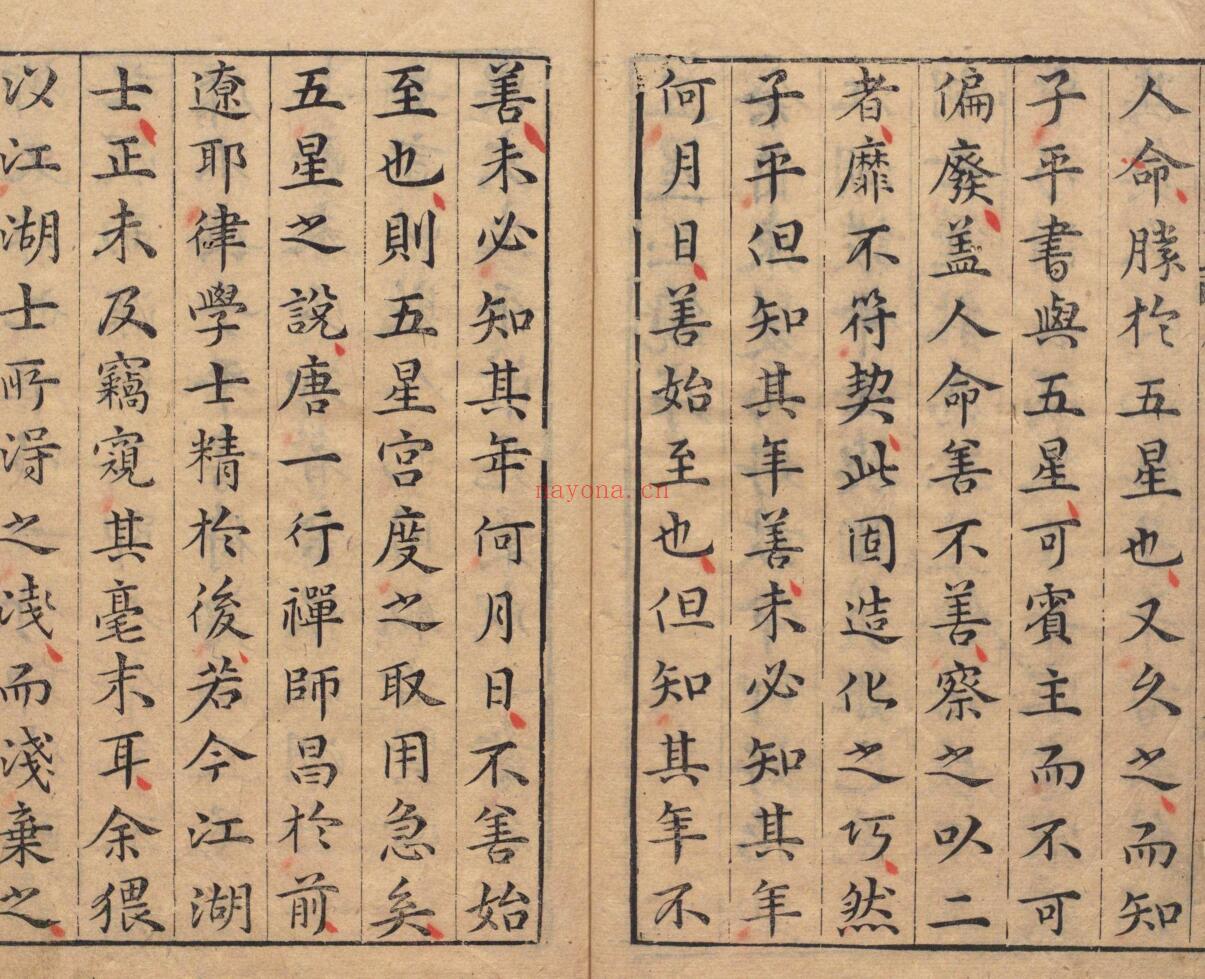 人命勝於五星也又久之而知
子平書與五星可賓主而不可
偏廢蓋人命善不善察之以二
者靡不符契此固造化之巧然
子平但知其年善未必知其年
何月日善始至也但知其年不
善未必知其年何月日不善始
至也則五星宮度之取用急矣
五星之說唐一行禪師昌於前
遼耶律學士精於後若今江湖
士正未及竊窺其毫末耳余猥
以江湖士所得之淺而淺棄之
nayona.cn